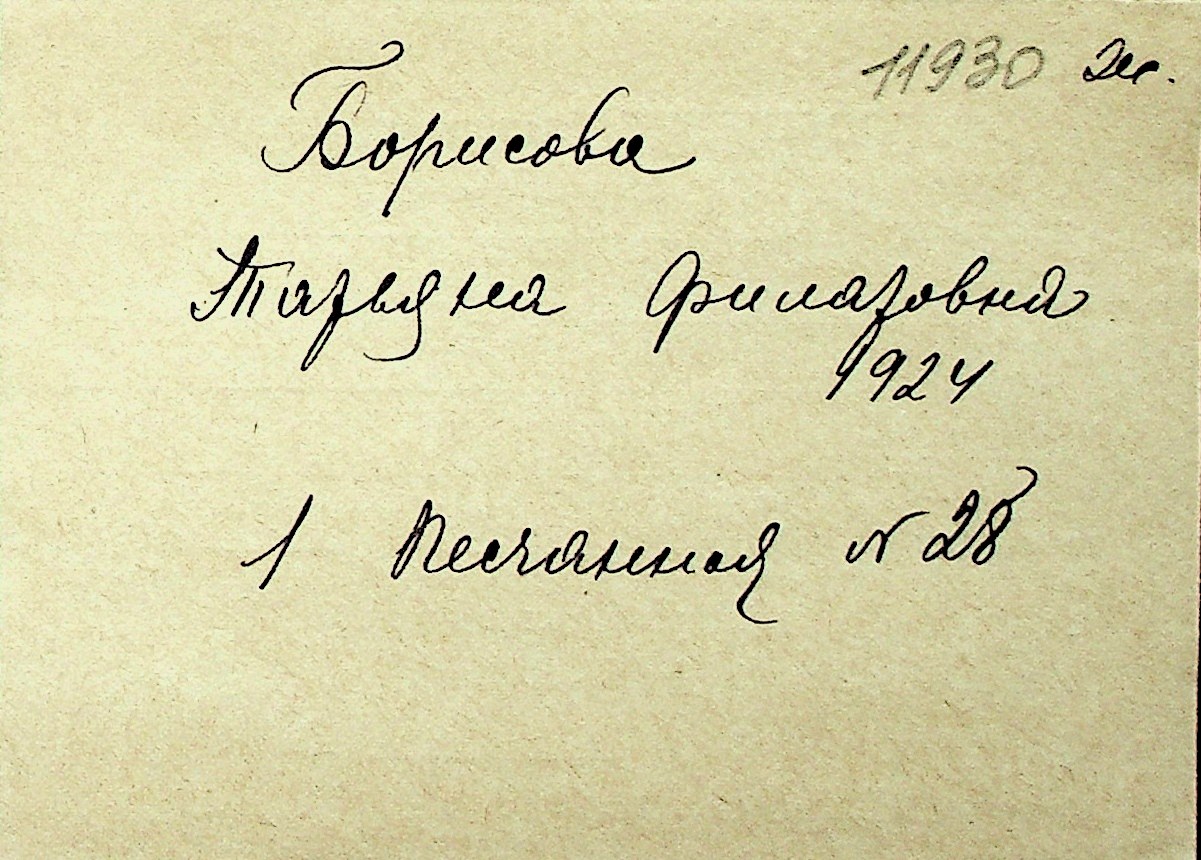 11930 Эк.
Борисова
Татьяна Филатовна
1924
1 Песчанная N 28